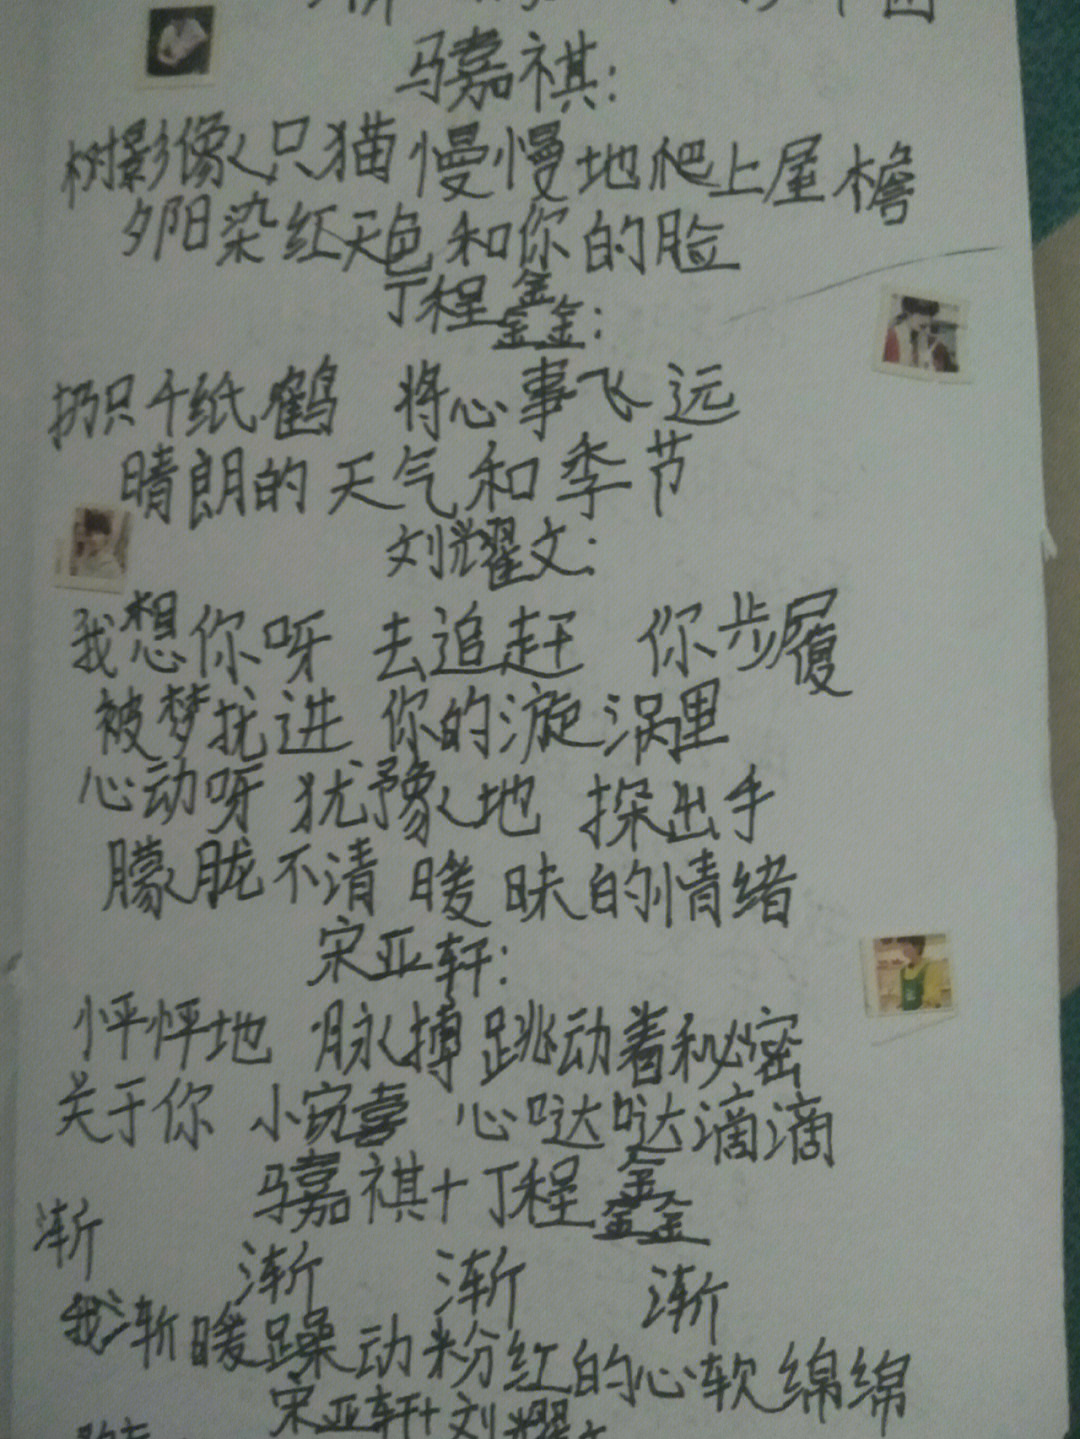 马嘉祺:
树影像只猫慢慢地爬上屋檐
夕阳染红天色和你的脸
丁程鑫:
扔只千纸鹤 将心事飞远
晴朗的天气和季节
刘耀文:
我想你呀 去追赶 你步履
被梦扰进 你的漩涡里
心动呀 犹豫地 探出手
朦胧不清 暧昧的情绪
宋亚轩:
怦怦地 脉搏跳动着秘密
关于你 小窃喜 心哒哒滴滴
马嘉祺+丁程鑫
渐 渐 渐 渐
我渐暖躁动粉红的心软绵绵
宋亚轩+刘耀文